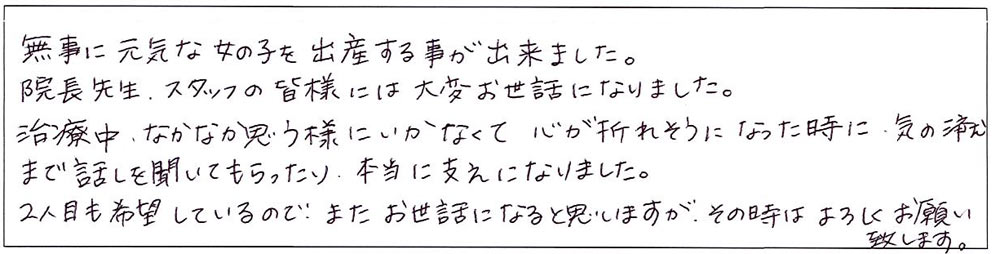 無事に元気な女の子を出産する事が出来ました。
院長先生、スタッフの皆様には大変お世話になりました。
治療中、なかなか思う様にいかなくて心が折れそうになった時に、気の済む
まで話しを聞いてもらったり、本当に支えになりました。
2人目も希望しているので、またお世話になると思いますが、その時はよろしくお願い
致します。